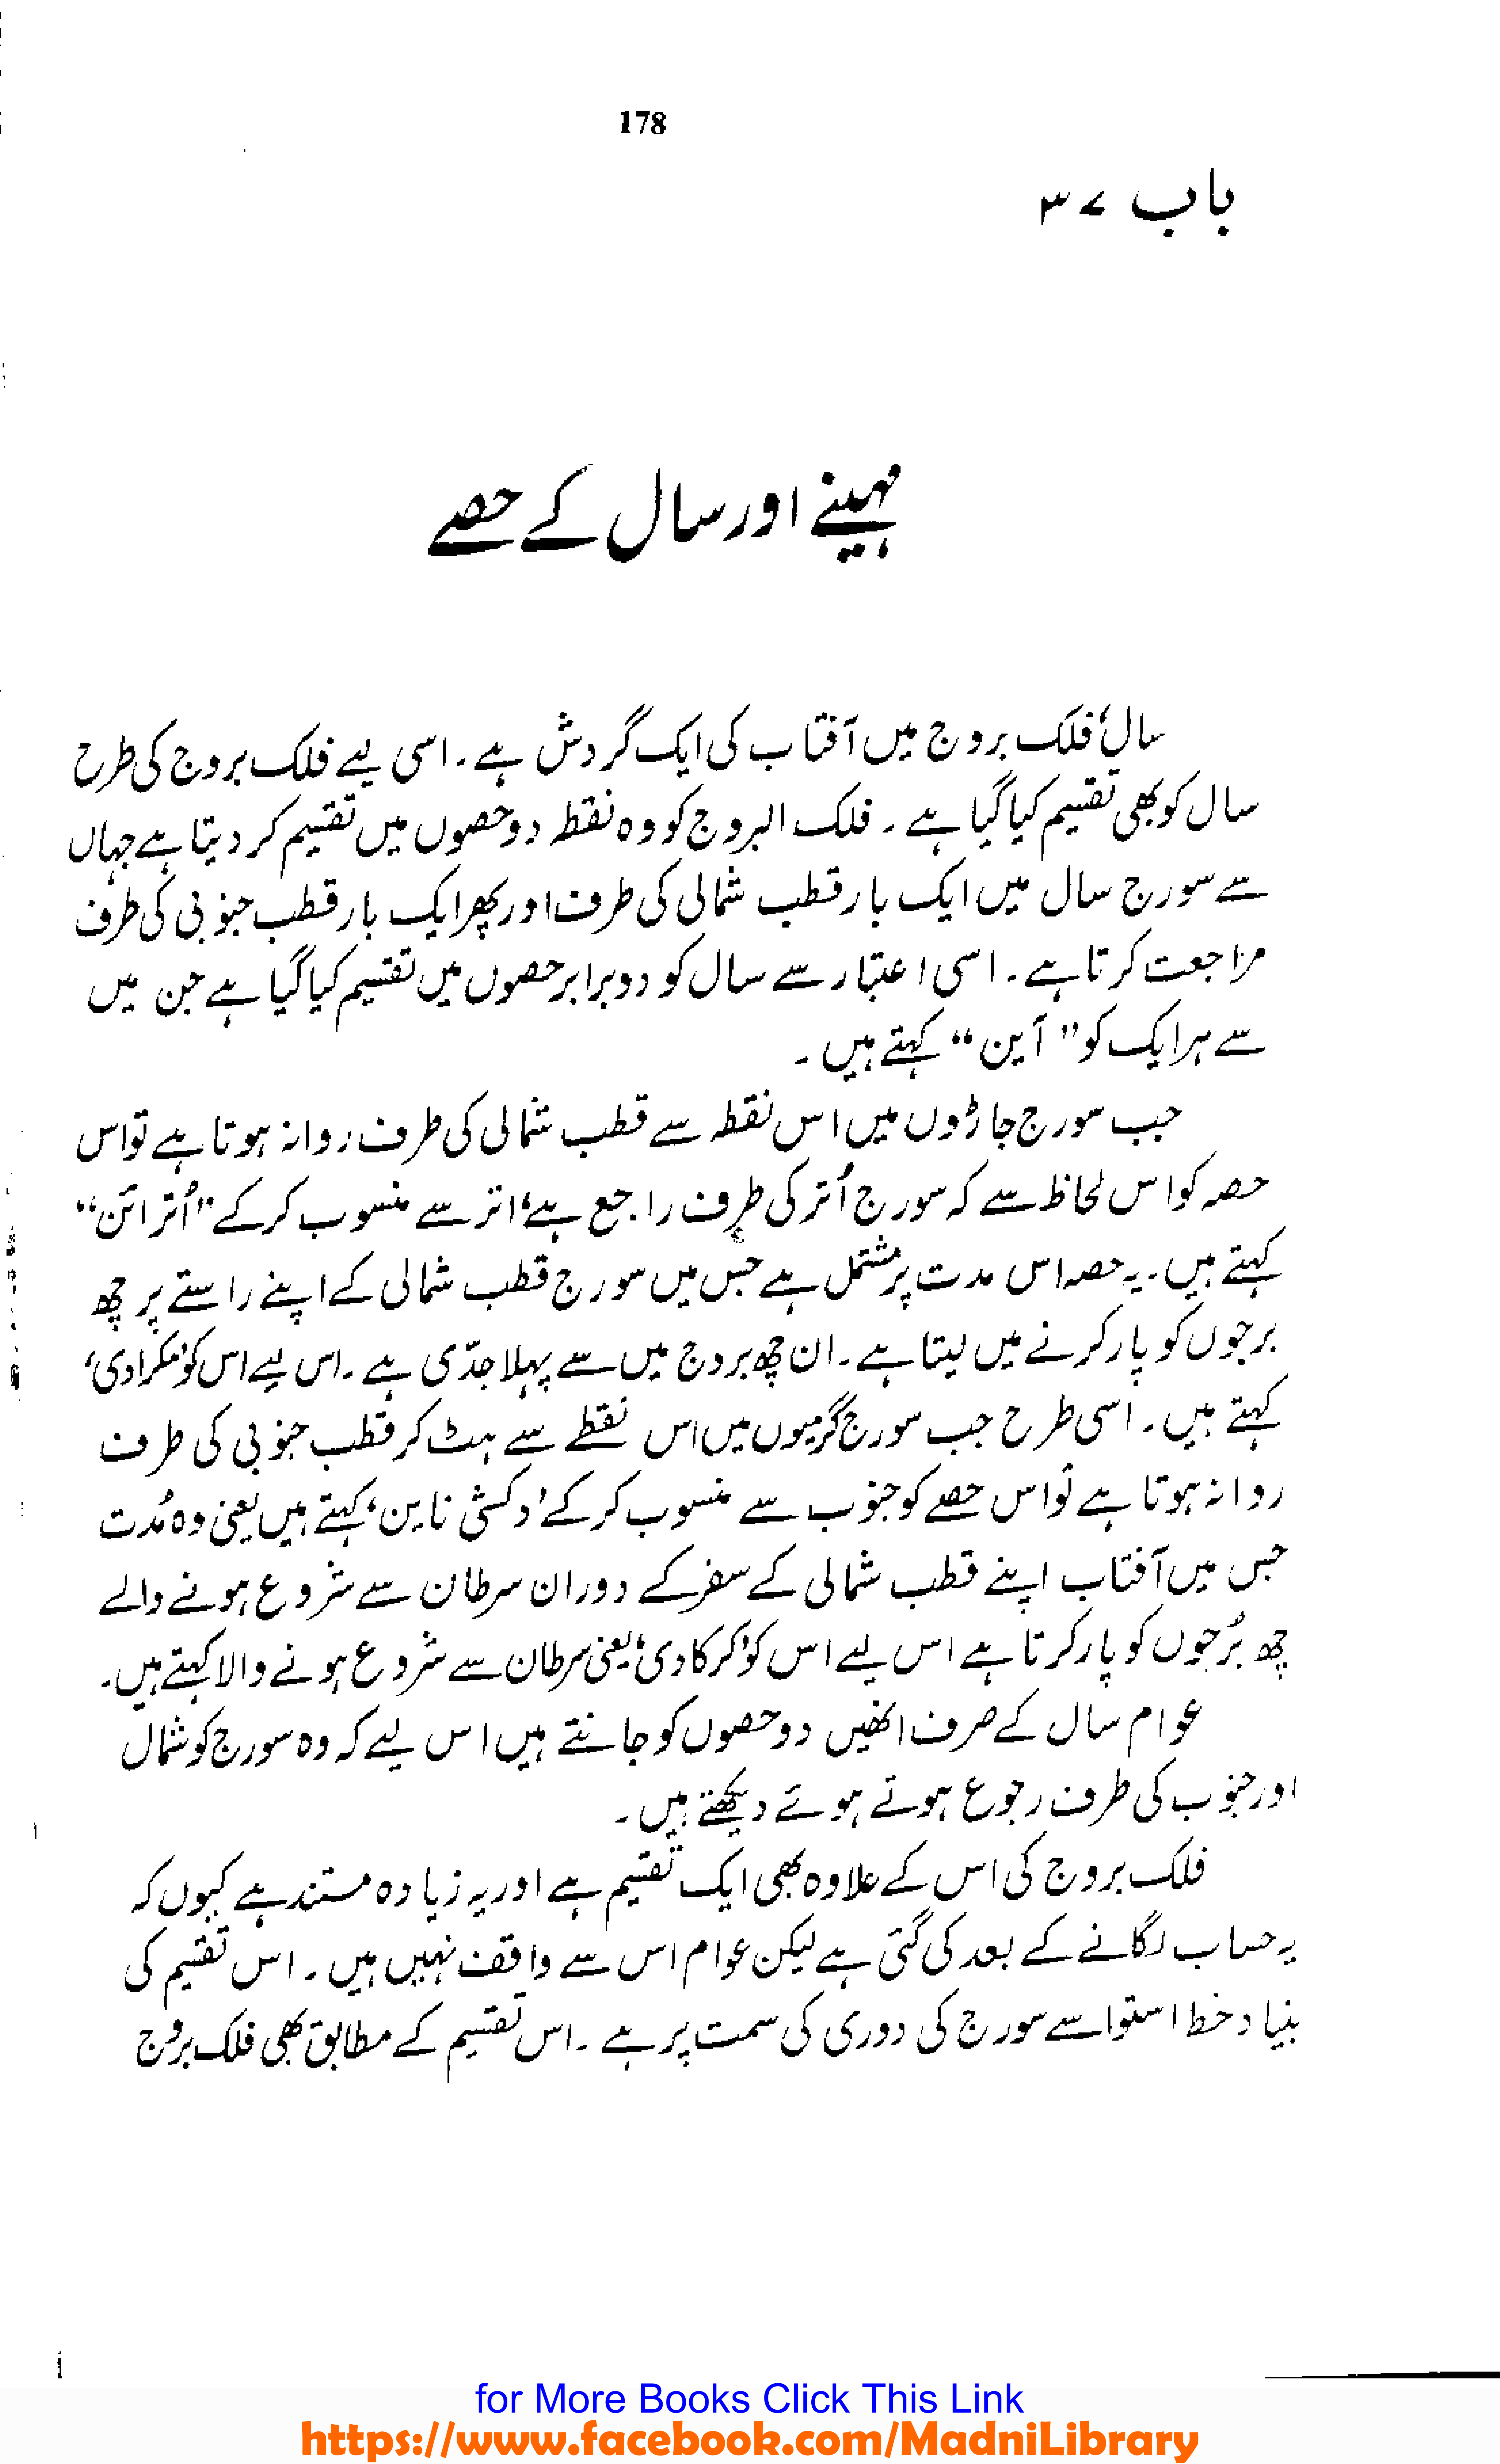 178
باب ۳۷
مہینے اور سال کے حصے
سال، فلک بروج میں آفتاب کی ایک گردش ہے۔ اسی لیے فلک بروج کی طرح
سال کو بھی تقسیم کیا گیا ہے۔ فلک البروج کو وہ نقطہ دو حصوں میں تقسیم کر دیتا ہے جہاں
سے سورج سال میں ایک بار قطب شمالی کی طرف اور پھر ایک بار قطب جنوبی کی طرف
مراجعت کرتا ہے۔ اسی اعتبار سے سال کو دو برابر حصوں میں تقسیم کیا گیا ہے جن میں
سے ہر ایک کو ”آین“ کہتے ہیں۔
جب سورج جاڑوں میں اس نقطہ سے قطب شمالی کی طرف روانہ ہوتا ہے تو اس
حصہ کو اس لحاظ سے کہ سورج اُتر کی طرف راجع ہے، اتر سے منسوب کر کے ”اُتر ائن“
کہتے ہیں۔ یہ حصہ اس مدت پر مشتمل ہے جس میں سورج قطب شمالی کے اپنے راستے پر چھ
برجوں کو پار کرنے میں لیتا ہے۔ ان چھ بروج میں سے پہلا جدّی ہے۔ اس لیے اس کو ’مکرادی‘
کہتے ہیں۔ اسی طرح جب سورج گرمیوں میں اس نقطے سے ہٹ کر قطب جنوبی کی طرف
روانہ ہوتا ہے تو اس حصے کو جنوب سے منسوب کر کے ’دکشی ناین‘ کہتے ہیں یعنی وہ مُدت
جس میں آفتاب اپنے قطب شمالی کے سفر کے دوران سرطان سے شروع ہونے والے
چھ بُرجوں کو پار کرتا ہے اس لیے اس کو ’کرکادی‘ یعنی سرطان سے شروع ہونے والا کہتے ہیں۔
عوام سال کے صرف انھیں دو حصوں کو جانتے ہیں اس لیے کہ وہ سورج کو شمال
اور جنوب کی طرف رجوع ہوتے ہوئے دیکھتے ہیں۔
فلک بروج کی اس کے علاوہ بھی ایک تقسیم ہے اور یہ زیادہ مستند ہے کیوں کہ
یہ حساب لگانے کے بعد کی گئی ہے لیکن عوام اس سے واقف نہیں ہیں۔ اس تقسیم کی
بنیاد خط استوا سے سورج کی دوری کی سمت پر ہے۔ اس تقسیم کے مطابق بھی فلک بروج
for More Books Click This Link
https://www.facebook.com/MadniLibrary